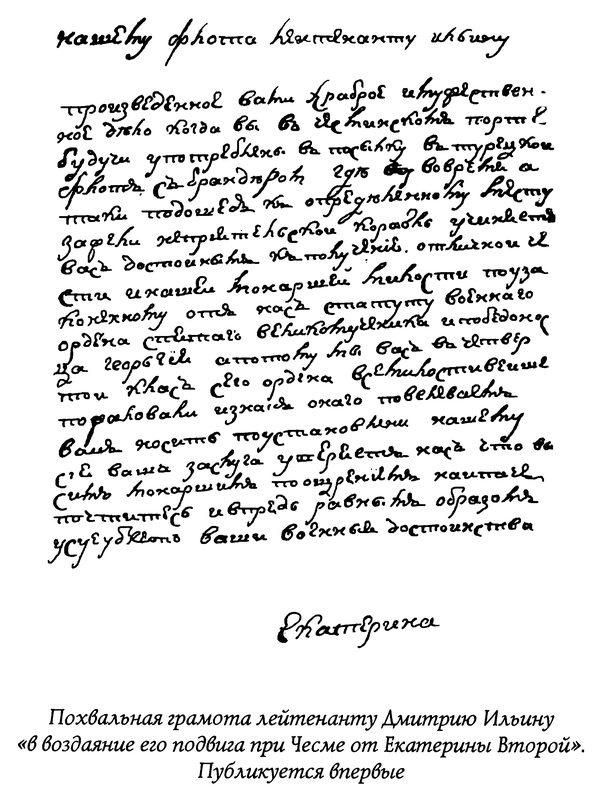 нашему флота леитенанту ильину
произведенное вами храброе имужествен-
ное дѣло когда вы въ чесминскомъ портѣ
будучи употребленъ въ посылку въ турецкой
флотъ съ брандеромъ гдѣ вовремя а
таки подошедъ къ определѣнному месту
зажегли неприятельской корабль учиняетъ
васъ достойнымъ къ полученїю отличной че
сти инашей монаршей милости поуза
коненному отъ насъ статуту военнаго
ордена святаго великомученика ипобедонос
ца георьгия апотому мы васъ въчетвер
той класъ сего ордена всемилостивейше
пожаловали изнакъ онаго повелѣваемъ
вамъ носить поустановлени нашему
сїя ваша заслуга уверяетъ насъ что вы
симъ монаршимъ поощрениемъ наипаче
почтитесь ивпредь равнымъ образомъ
усугублять ваши военныя достоинства
екатерина
Похвальная грамота лейтенанту Дмитрию Ильину
«в воздаяние его подвига при Чесме от Екатерины Второй».
Публикуется впервые